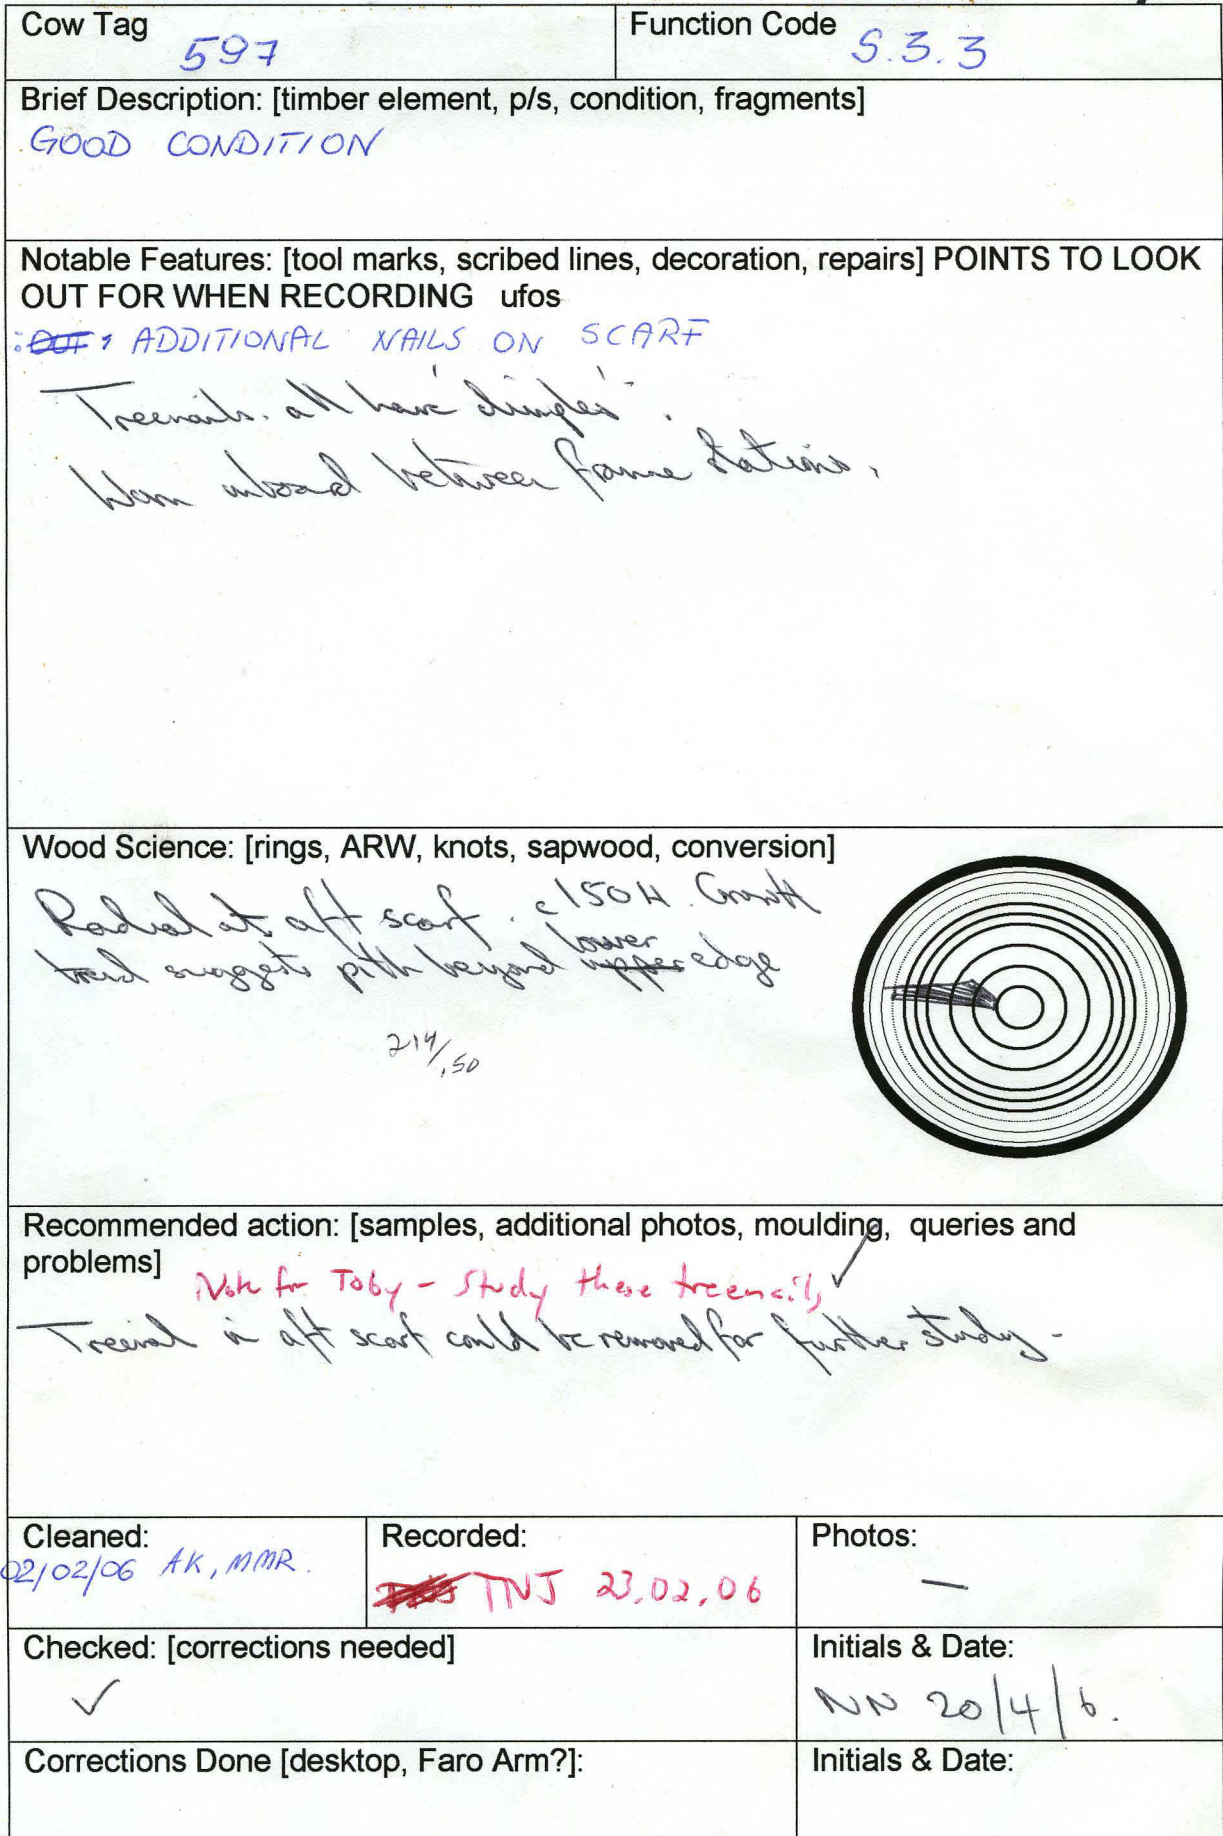 Cow Tag
597
Function Code
S.3.3
Brief Description: [timber element, p/s, condition, fragments]
GOOD CONDITION
Notable Features: [tool marks, scribed lines, decoration, repairs] POINTS TO LOOK
OUT FOR WHEN RECORDING ufos
: OUT : ADDITIONAL NAILS ON SCARF
Treenails. all have 'dimples'.
Worn inboard between frame stations.
Wood Science: [rings, ARW, knots, sapwood, conversion]
Radial at aft scarf. c150H. Growth
trend suggests pith beyond upper lower edge
214/,50
Recommended action: [samples, additional photos, moulding, queries and
problems]
Note for Toby - Study these treenails ✓
Treenail in aft scarf could be removed for further study -
Cleaned:
02/02/06 AK, MMR.
Recorded:
TNJ 23.02.06
Photos:
—
Checked: [corrections needed]
✓
Initials & Date:
NN 20/4/6.
Corrections Done [desktop, Faro Arm?]:
Initials & Date: